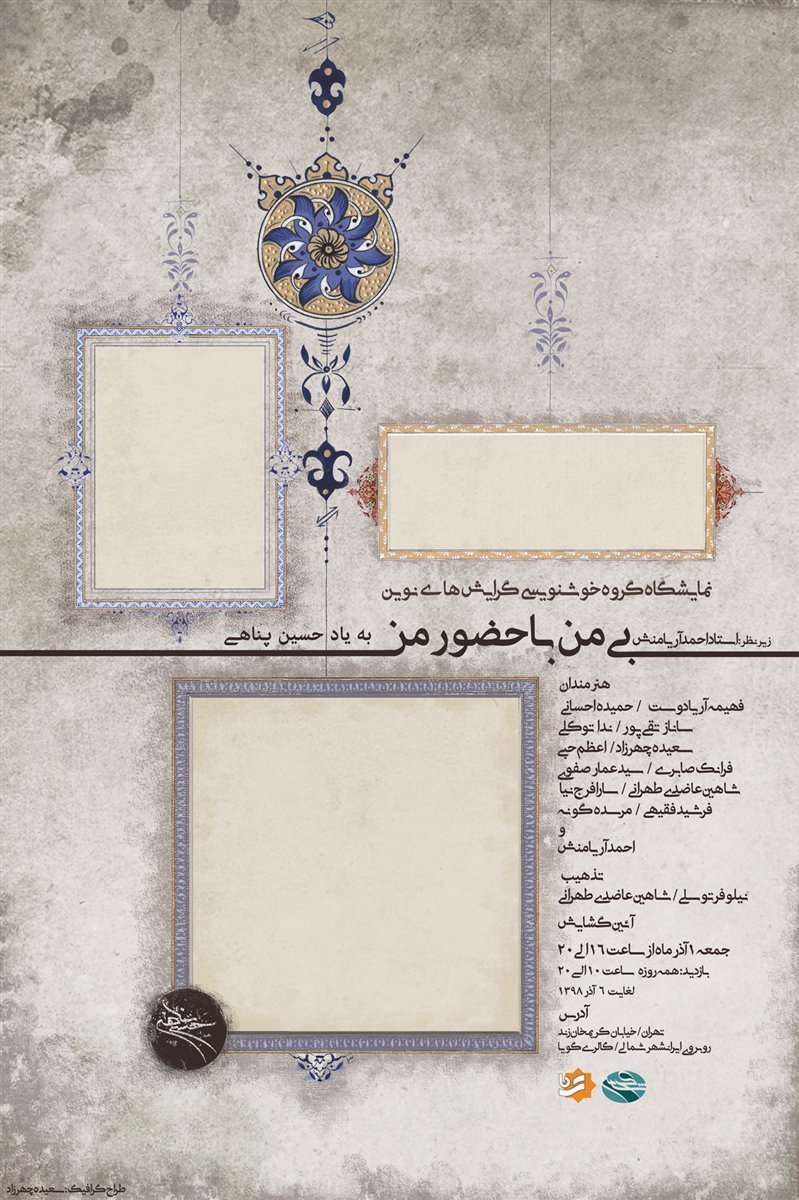 نمایشگاه گروه خوشنویسی گرایش های نوین
زیر نظر: استاد احمد آریامنش بی من با حضور من به یاد حسین پناهی
هنرمندان
فهیمه آریادوست / حمیده احسانی
ساناز تقی پور / ندا توکلی
سعیده چهرزاد / اعظم حبی
فرانک صابری / سید عمار صفوی
شاهین عاضدی طهرانی / سارا فرج نیا
فرشید فقیهی / مرسده گونه
و
احمد آریامنش
تذهیب
نیلوفر توسلی / شاهین عاضدی طهرانی
آئین گشایش
جمعه ۱ آذر ماه از ساعت ۱۶ الی ۲۰
بازدید: همه روزه ساعت ۱۰ الی ۲۰
لغایت ۶ آذر ۱۳۹۸
آدرس
تهران / خیابان کریمخان زند
روبروی ایرانشهر شمالی / گالری گویا
طراح گرافیک: سعیده چهرزاد